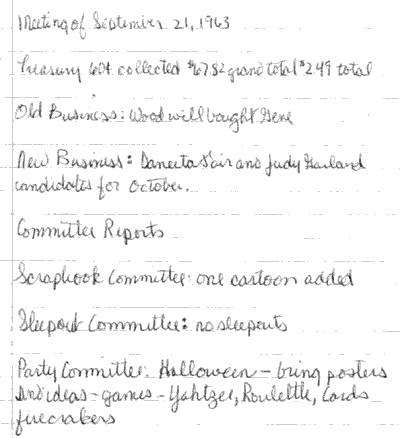 Meeting of September 21, 1963
Treasury 60¢ collected $67.82 grand total $2.49 total
Old Business: Wood will bought Gene
New Business: Daneeta Hair and Judy Garland
candidates for October.
Committee Reports
Scrapbook Committee: one cartoon added
Sleepout Committee: no sleepouts
Party Committee: Halloween - bring posters
And ideas - games - Yahtzee, Roulette, Cards
firecrakers